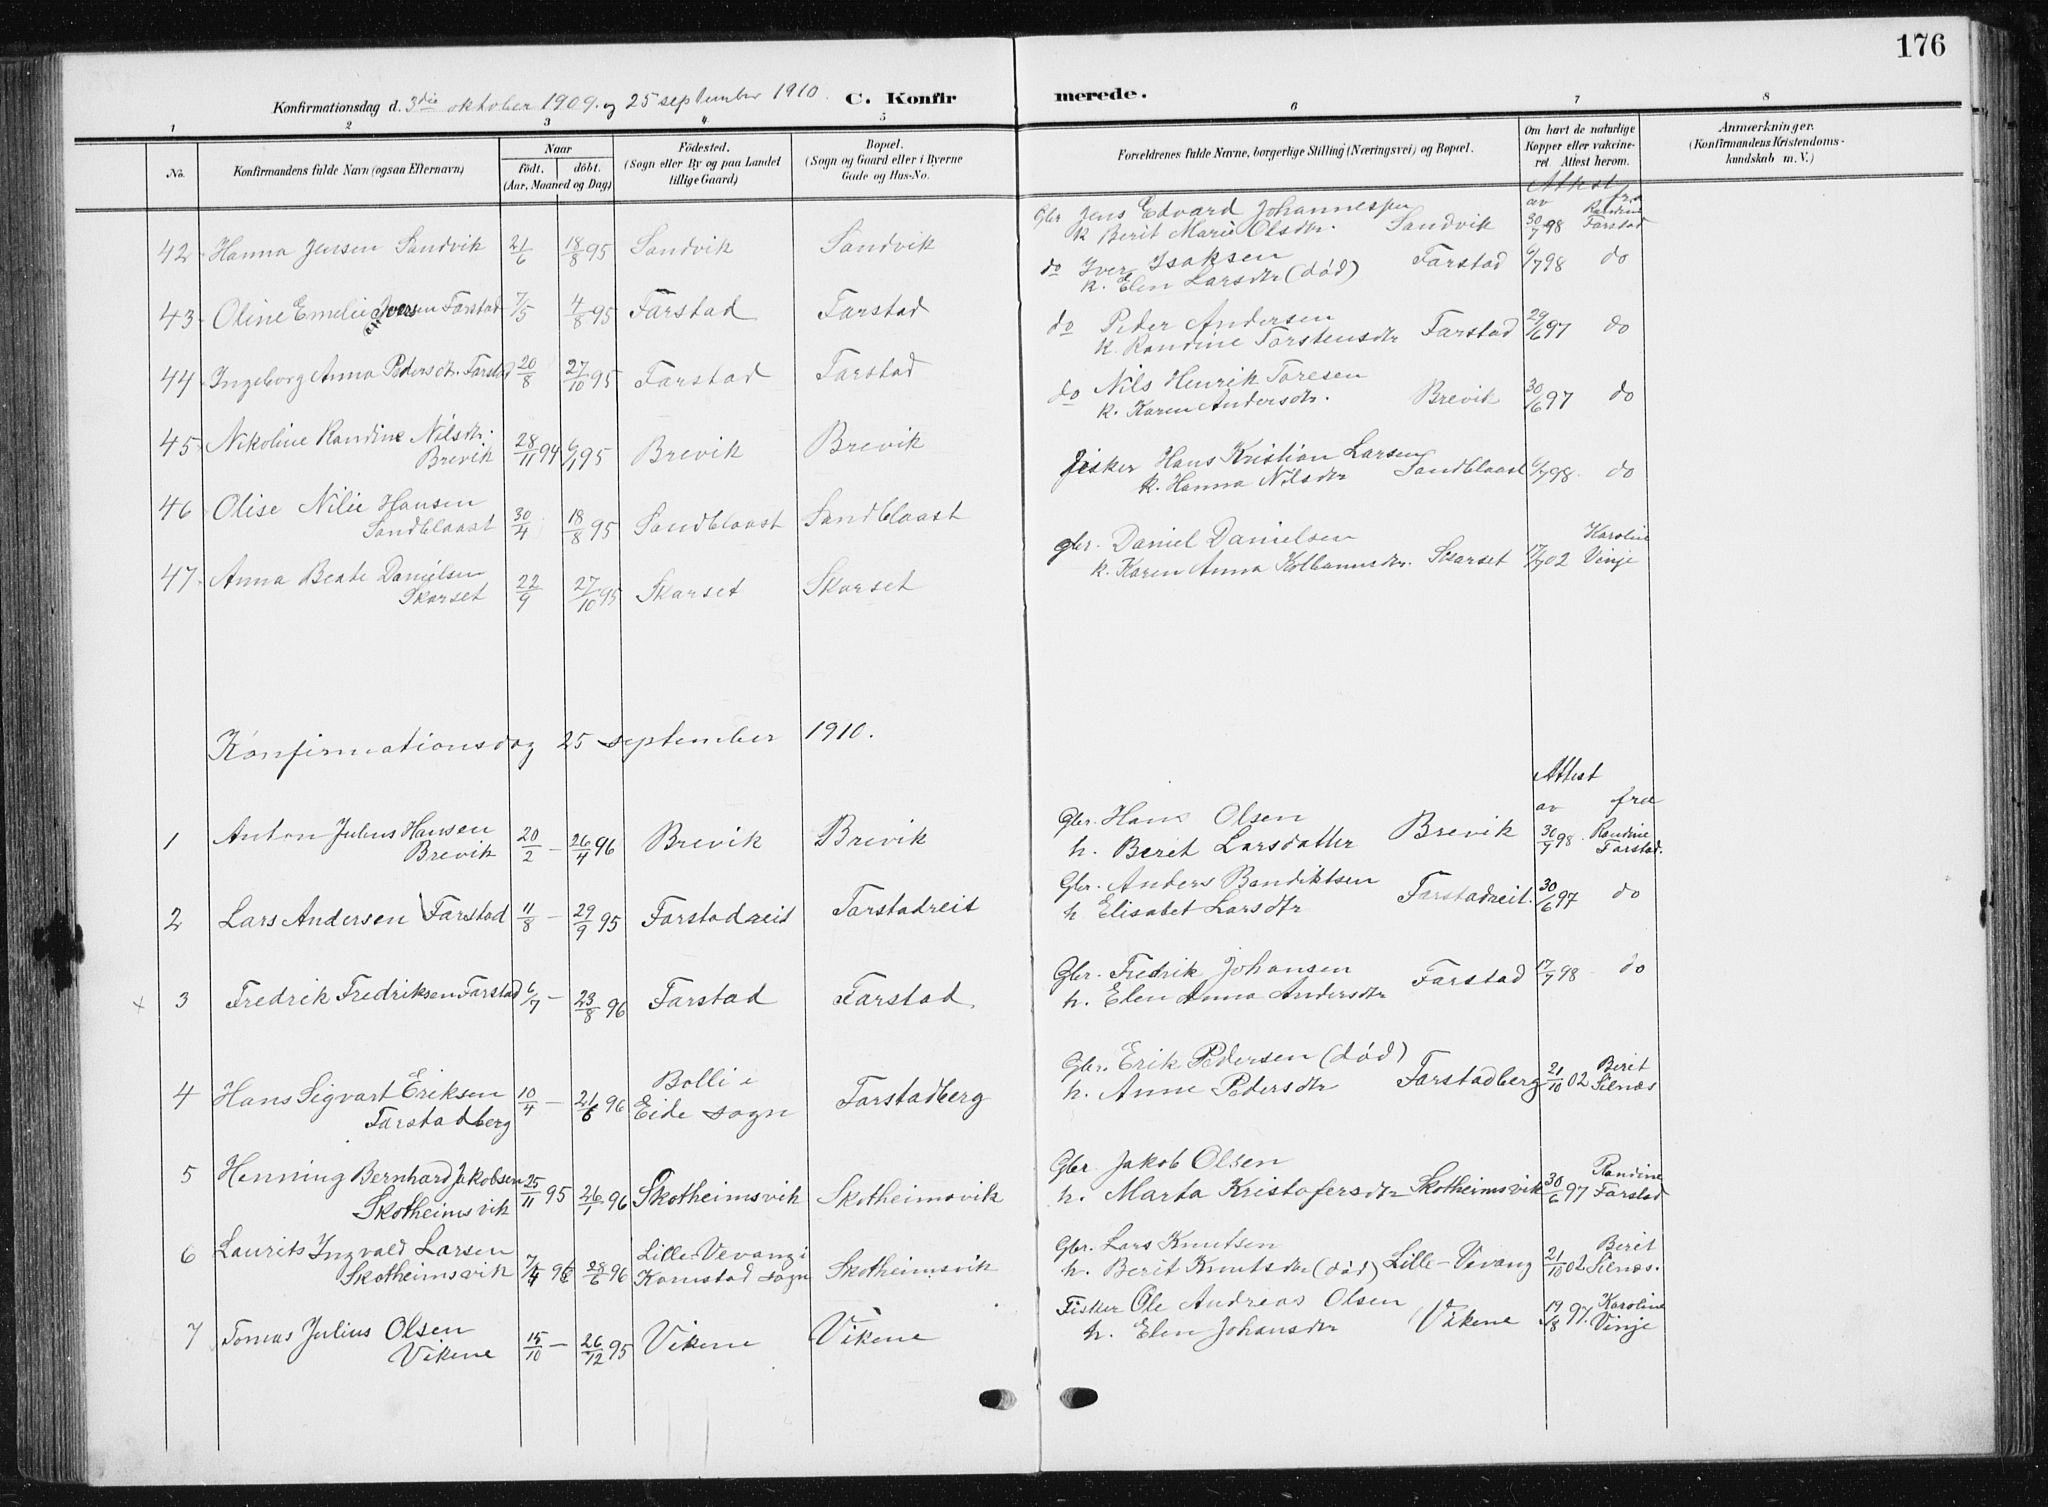 176
Konfirmationsdag d. 3die oktober 1909. og 25 september 1910. C. Konfirmerede.
1 2 3 4 5 6 7 8
No.
Konfirmandens fulde Navn (ogsaa Efternavn)
Naar
født. døbt.
(Aar, Maaned og Dag)
Fødested.
(Sogn eller By og paa Landet
tillige Gaard)
Bopæl.
(Sogn og Gaard eller i Byerne
Gade og Hus-No.
Forældrenes fulde Navne, borgerlige Stilling (Næringsvei) og Bopæl.
Om havt de naturlige
Kopper eller vakcine-
ret. Attest herom.
Anmærkninger.
(Konfirmandens Kristendoms-
kundskab m. V.)
Attest
av fra
42 Hanna Jensen Sandvik 21/6 18/8 95 Sandvik Sandvik Gbr Jens Edvard Johannessen
k Berit Marie Olsdtr. Sandvik 30/7 98 Randine Farstad
43 Oline Emelie Iversen Farstad 7/5 4/8 95 Farstad Farstad do Iver Isaksen
k. Elen Larsdtr (død) Farstad 6/7 98 do
44 Ingeborg Anna Pedersdtr. Farstad 20/8 27/10 95 Farstad Farstad do Peder Andersen
k. Randine Torstensdtr Farstad 29/6 97 do
45 Nikoline Randine Nilsdtr.
Brevik 28/11 94 6/1 95 Brevik Brevik do Nils Henrik Toresen
k. Karen Andersdtr. Brevik 30/6 97 do
46 Olise Nilie Hansen
Sandblaast 30/4 18/8 95 Sandblaast Sandblaast Fisker Hans Kristian Larsen
k. Hanna Nilsdtr Sandblaast 6/7 98. do
47 Anna Beate Danielsen
Skarset 22/9 27/10 95 Skarset Skarset gbr. Daniel Danielsen
k. Karen Anna Kolbannsdtr. Skarset 17/7 02 Karoline Vinje
Konfirmationsdag 25 september 1910.
Attest
av fra
1 Anton Julius Hansen
Brevik 20/2 — 26/4 96 Brevik Brevik Gbr. Hans Olsen
h. Beret Larsdatter Brevik 30/7 98. Randine Farstad.
2 Lars Andersen Farstad 11/8 — 29/9 95 Farstadreit Farstadreit Gbr. Anders Bendiktsen
h Elisabet Larsdtr Farstadreit. 30/6 97 do
x 3 Fredrik Fredriksen Farstad 6/7 — 23/8 96 Farstad Farstad Gbr. Fredrik Johansen
h. Elen Anna Andersdtr Farstad 17/7 98 do
4 Hans Sigvart Eriksen
Farstadberg 10/4 — 21/6 96 Bolli i
Eide sogn Farstadberg Gbr. Erik Pedersen (død)
h. Anne Pedersdtr Farstadberg 21/10 02 Berit Silnæs
5 Henning Bernhard Jakobsen
Skotheimsvik 25/11 95 26/1 96 Skotheimsvik Skotheimsvik Gbr. Jakob Olsen
h. Marta Kristofersdtr Skotheimsvik 30/6 97 Randine Farstad
6 Laurits Ingvald Larsen
Skotheimsvik 7/4 96 28/6 96 Lille-Vevang i
Kornstad sogn Skotheimsvik Gbr. Lars Knutsen
h. Berit Knutsdtr (død) Lille-Vevang 21/10 02 Berit Silnæs.
7 Tomas Julius Olsen
Vikene 15/10 — 26/12 95 Vikene Vikene Fisker Ole Andreas Olsen
h. Elen Johansdtr Vikene 19/8 97. Karoline Vinje